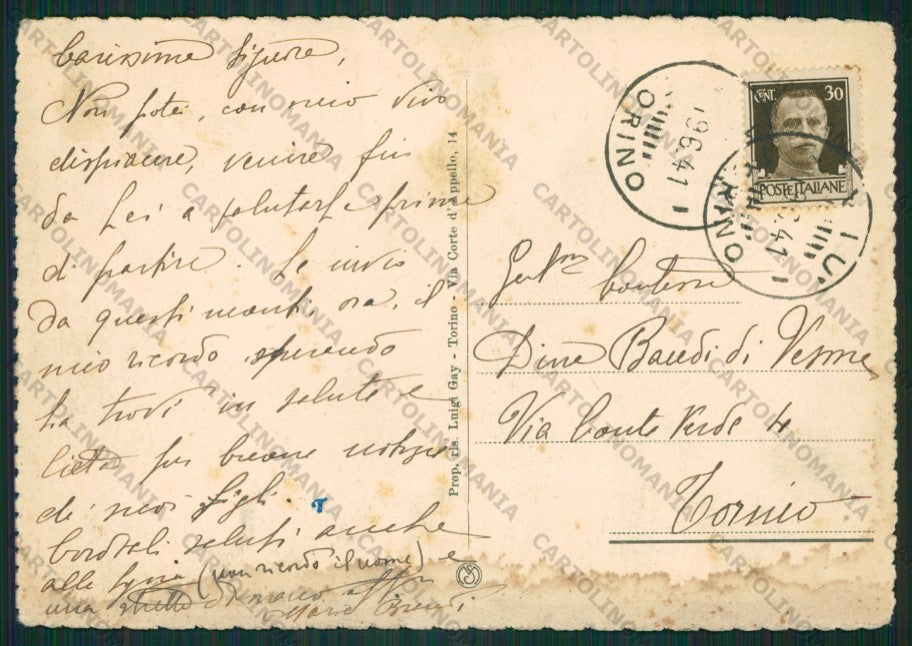 Carissima Signora,
Non potei, con mio vivo
dispiacere, venire fin
da Lei a salutarla prima
di partire. Le invio
da questi monti, ora, il
mio ricordo sperando
la trovi in salute e
lieta per buone notizie
dei suoi figli.
Cordiali saluti anche
alla Sig.na (non ricordo il nome) e
una stretta di mano
Maria
Prop. ris. Luigi Gay - Torino - Via Corte d'Appello, 14
TORINO
19.6.41
TORINO
CENT. 30
POSTE ITALIANE
Gent.ma Contessa
Dina Baudi di Vesme
Via Conte Verde 4
Torino
T
CARTOLINOMANIA